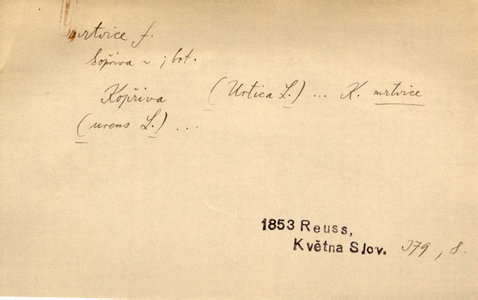 mrtvice f.
kopřiva ~ ; bot.
Kopřiva (Urtica L.) ... K. mrtvice
(urens L.) ...
1853 Reuss,
Května Slov. 379, 8.